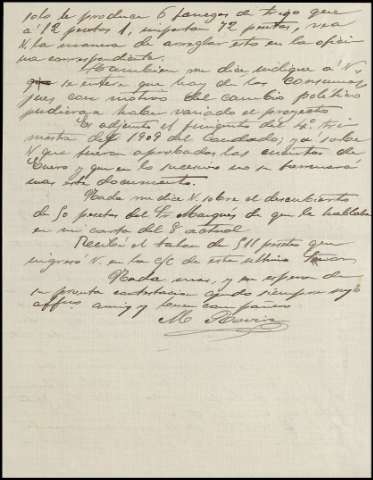 solo le produce 6 fanegas de trigo que
a 12 pesetas 1, importan 72 pesetas, vea
V. la manera de arreglar esto en la ofici
na correspondiente.
Tambien me dice indique a V.
se entere que hay de los consumos
pues con motivo del cambio politico
pudiera haber variado el proyecto
Es adjunto el finiquito del 4º tri
mestre de 1909 del Condado, ya sabe
V. que fueron aprobadas las cuentas de
Enero y que en lo sucesivo no se
mas este documento.
Nada me dice V. sobre el descubierto
de 50 pesetas del Sr. Marques de que le hablaba
en mi carta del 8 actual
Recibi el talon de 511 pesetas que
ingresó V. en la c/c de esta ultima
Nada mas, y en espera de
su pronta contestacion quedo siempre suyo
affmo amigo y buen compañero
M.